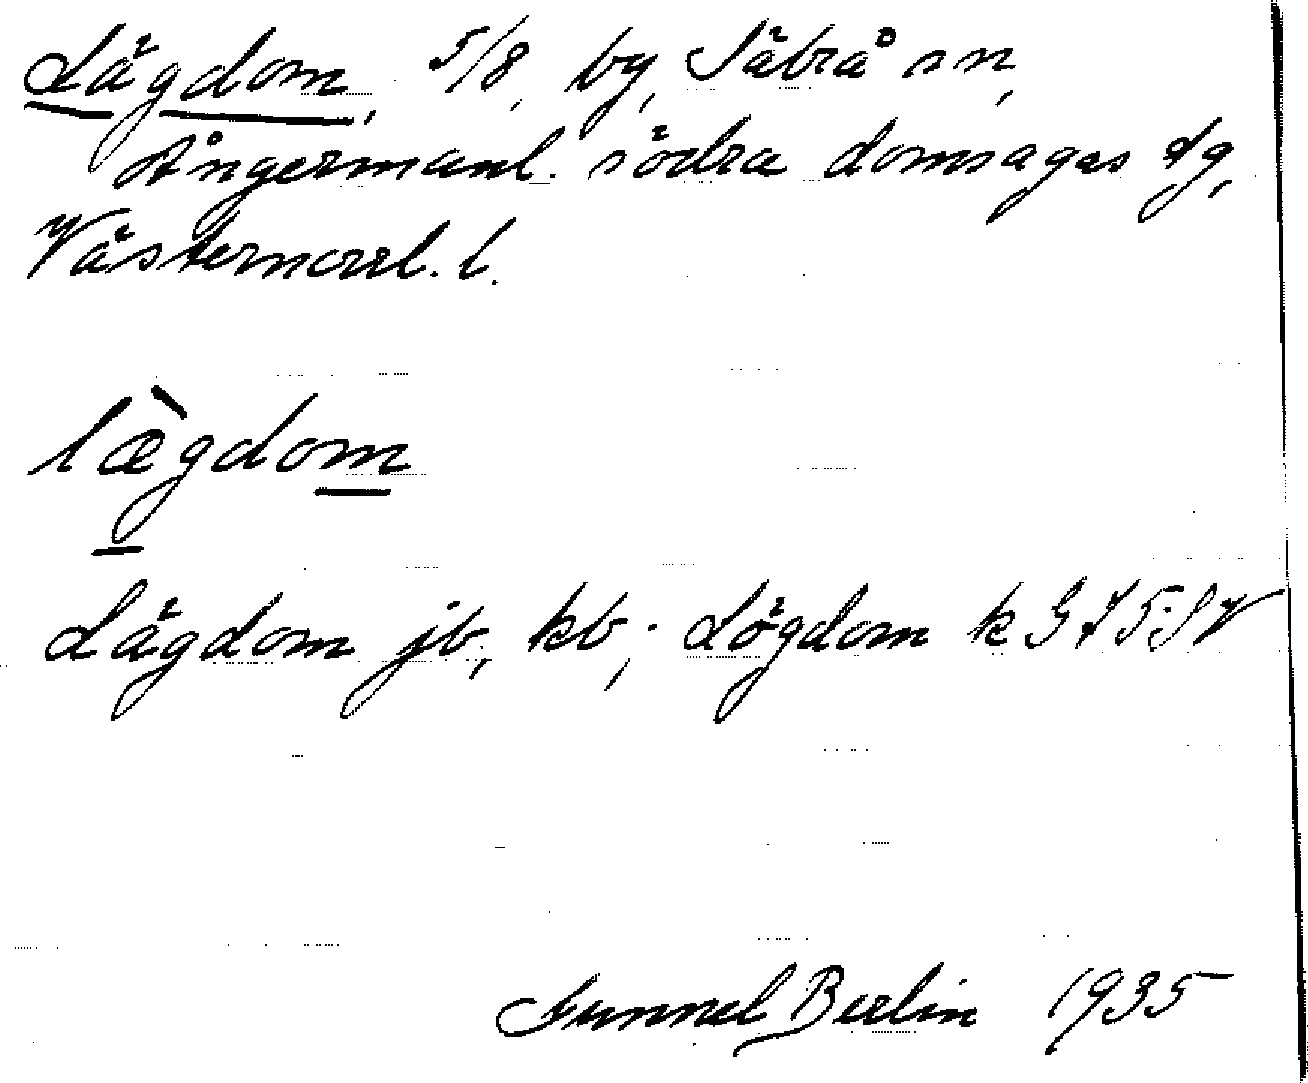 Lägdom, 5/8, by, Säbrå sn,
Ångermanl. södra domsagas dg,
Västernorrl. l.
læ̀gdom
Lägdom jb, kb; Lögdom k
Gunnel Berlin 1935